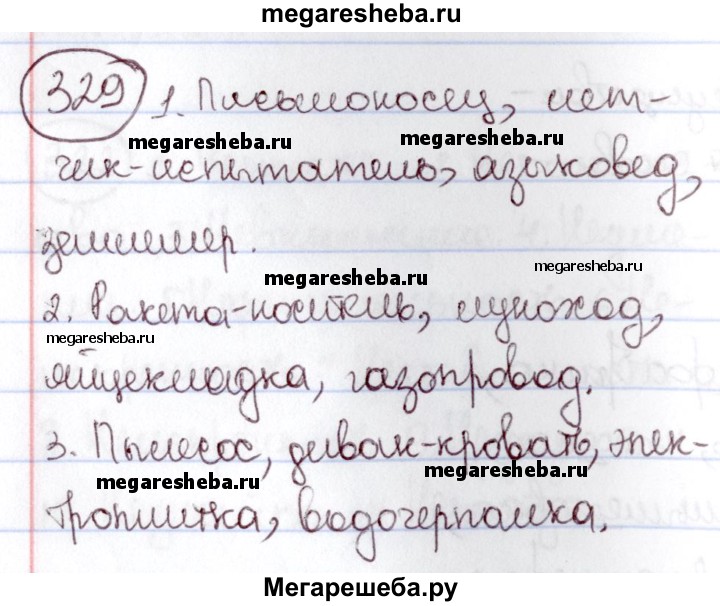 megaresheba.ru
329 1. Письмоносец, лет-
megaresheba.ru megaresheba.ru
чик-испытатель, языковед,
землемер.
megaresheba.ru megaresheba.ru
2. Ракета-носитель, луноход,
megaresheba.ru
яйцекладка, газопровод.
3. Пылесос, диван-кровать, элек-
megaresheba.ru megaresheba.ru
троплитка, водочерпалка.
Мегарешеба.ру